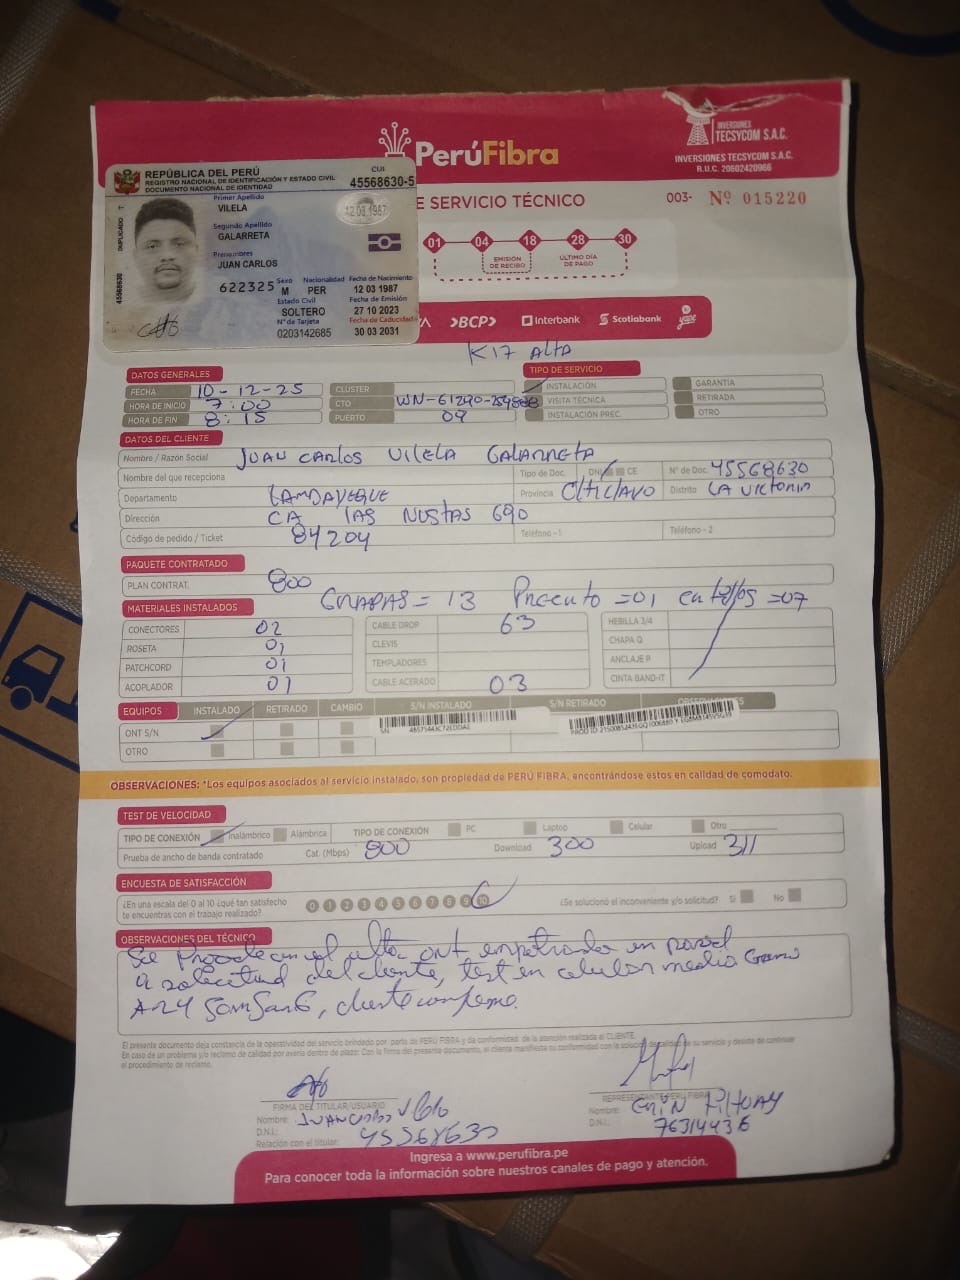 INVERSIONES
TECSYCOM S.A.C.
PerúFibra
INVERSIONES TECSYCOM S.A.C.
R.U.C. 20602420966
REPÚBLICA DEL PERÚ
REGISTRO NACIONAL DE IDENTIFICACIÓN Y ESTADO CIVIL
DOCUMENTO NACIONAL DE IDENTIDAD
CUI
45568630-5
Primer Apellido
VILELA
12 03 1987
Segundo Apellido
GALARRETA
Prenombres
JUAN CARLOS
DUPLICADO 1
45568630
622325
Sexo Nacionalidad Fecha de Nacimiento
M PER 12 03 1987
Estado Civil Fecha de Emisión
SOLTERO 27 10 2023
Nº de Tarjeta Fecha de Caducidad
0203142685 30 03 2031
E SERVICIO TÉCNICO
003- Nº 015220
01 04 18 28 30
EMISIÓN DE RECIBO
ÚLTIMO DÍA DE PAGO
BCP Interbank Scotiabank yape
K17 ALTA
DATOS GENERALES
TIPO DE SERVICIO
FECHA 10-12-25
CLUSTER
INSTALACIÓN
GARANTÍA
HORA DE INICIO 7:00
CTO
VISITA TÉCNICA
RETIRADA
HORA DE FIN 8:15
PUERTO 09
INSTALACIÓN PREC.
OTRO
DATOS DEL CLIENTE
Nombre / Razón Social JUAN CARLOS VILELA GALARRETA
Nombre del que recepciona
Tipo de Doc. DNI CE
Nº de Doc. 45568630
Departamento LAMBAYEQUE
Provincia CHICLAYO
Distrito LA VICTORIA
Dirección CA LAS NUSTAS 690
Código de pedido / Ticket 84204
Teléfono - 1
Teléfono - 2
PAQUETE CONTRATADO
PLAN CONTRAT. 800
GRAPAS = 13 Precinto = 01 = 07
MATERIALES INSTALADOS
CONECTORES 02
CABLE DROP 63
HEBILLA 3/4
ROSETA 01
CLEVIS
CHAPA Q
PATCHCORD 01
TEMPLADORES
ANCLAJE P
ACOPLADOR 01
CABLE ACERADO 03
CINTA BAND-IT
EQUIPOS INSTALADO RETIRADO CAMBIO S/N INSTALADO S/N RETIRADO OBSERVACIONES
ONT S/N
SN
OTRO
OBSERVACIONES: *Los equipos asociados al servicio instalado, son propiedad de PERÚ FIBRA, encontrándose estos en calidad de comodato.
TEST DE VELOCIDAD
TIPO DE CONEXIÓN Inalámbrico Alámbrica TIPO DE CONEXIÓN PC Laptop Celular Otro
Prueba de ancho de banda contratado Cat. (Mbps) 800 Download 300 Upload 311
ENCUESTA DE SATISFACCIÓN
¿En una escala del 0 al 10 ¿qué tan satisfecho
te encuentras con el trabajo realizado?
0 1 2 3 4 5 6 7 8 9 10
¿Se solucionó el inconveniente y/o solicitud? Si No
OBSERVACIONES DEL TÉCNICO
Se Procede con el alta ONT empotrada en pared
a solicitud del cliente, test en celular media Gama
A-24 SamSunG, cliente conforme.
El presente documento deja constancia de la operatividad del servicio brindado por parte de PERÚ FIBRA y da conformidad de la atención realizada al CLIENTE.
En caso de un problema y/o reclamo de calidad por avería dentro de plazo: Con la firma del presente documento, el cliente manifiesta su conformidad con la solución de calidad de su servicio y desiste de continuar
el procedimiento de reclamo.
FIRMA DEL TITULAR/USUARIO
REPRESENTANTE PERÚ FIBRA
Nombre: JUAN CARLOS Vilela
Nombre:
D.N.I.: 45568630
D.N.I.: 76314436
Relación con el titular:
Ingresa a www.perufibra.pe
Para conocer toda la información sobre nuestros canales de pago y atención.